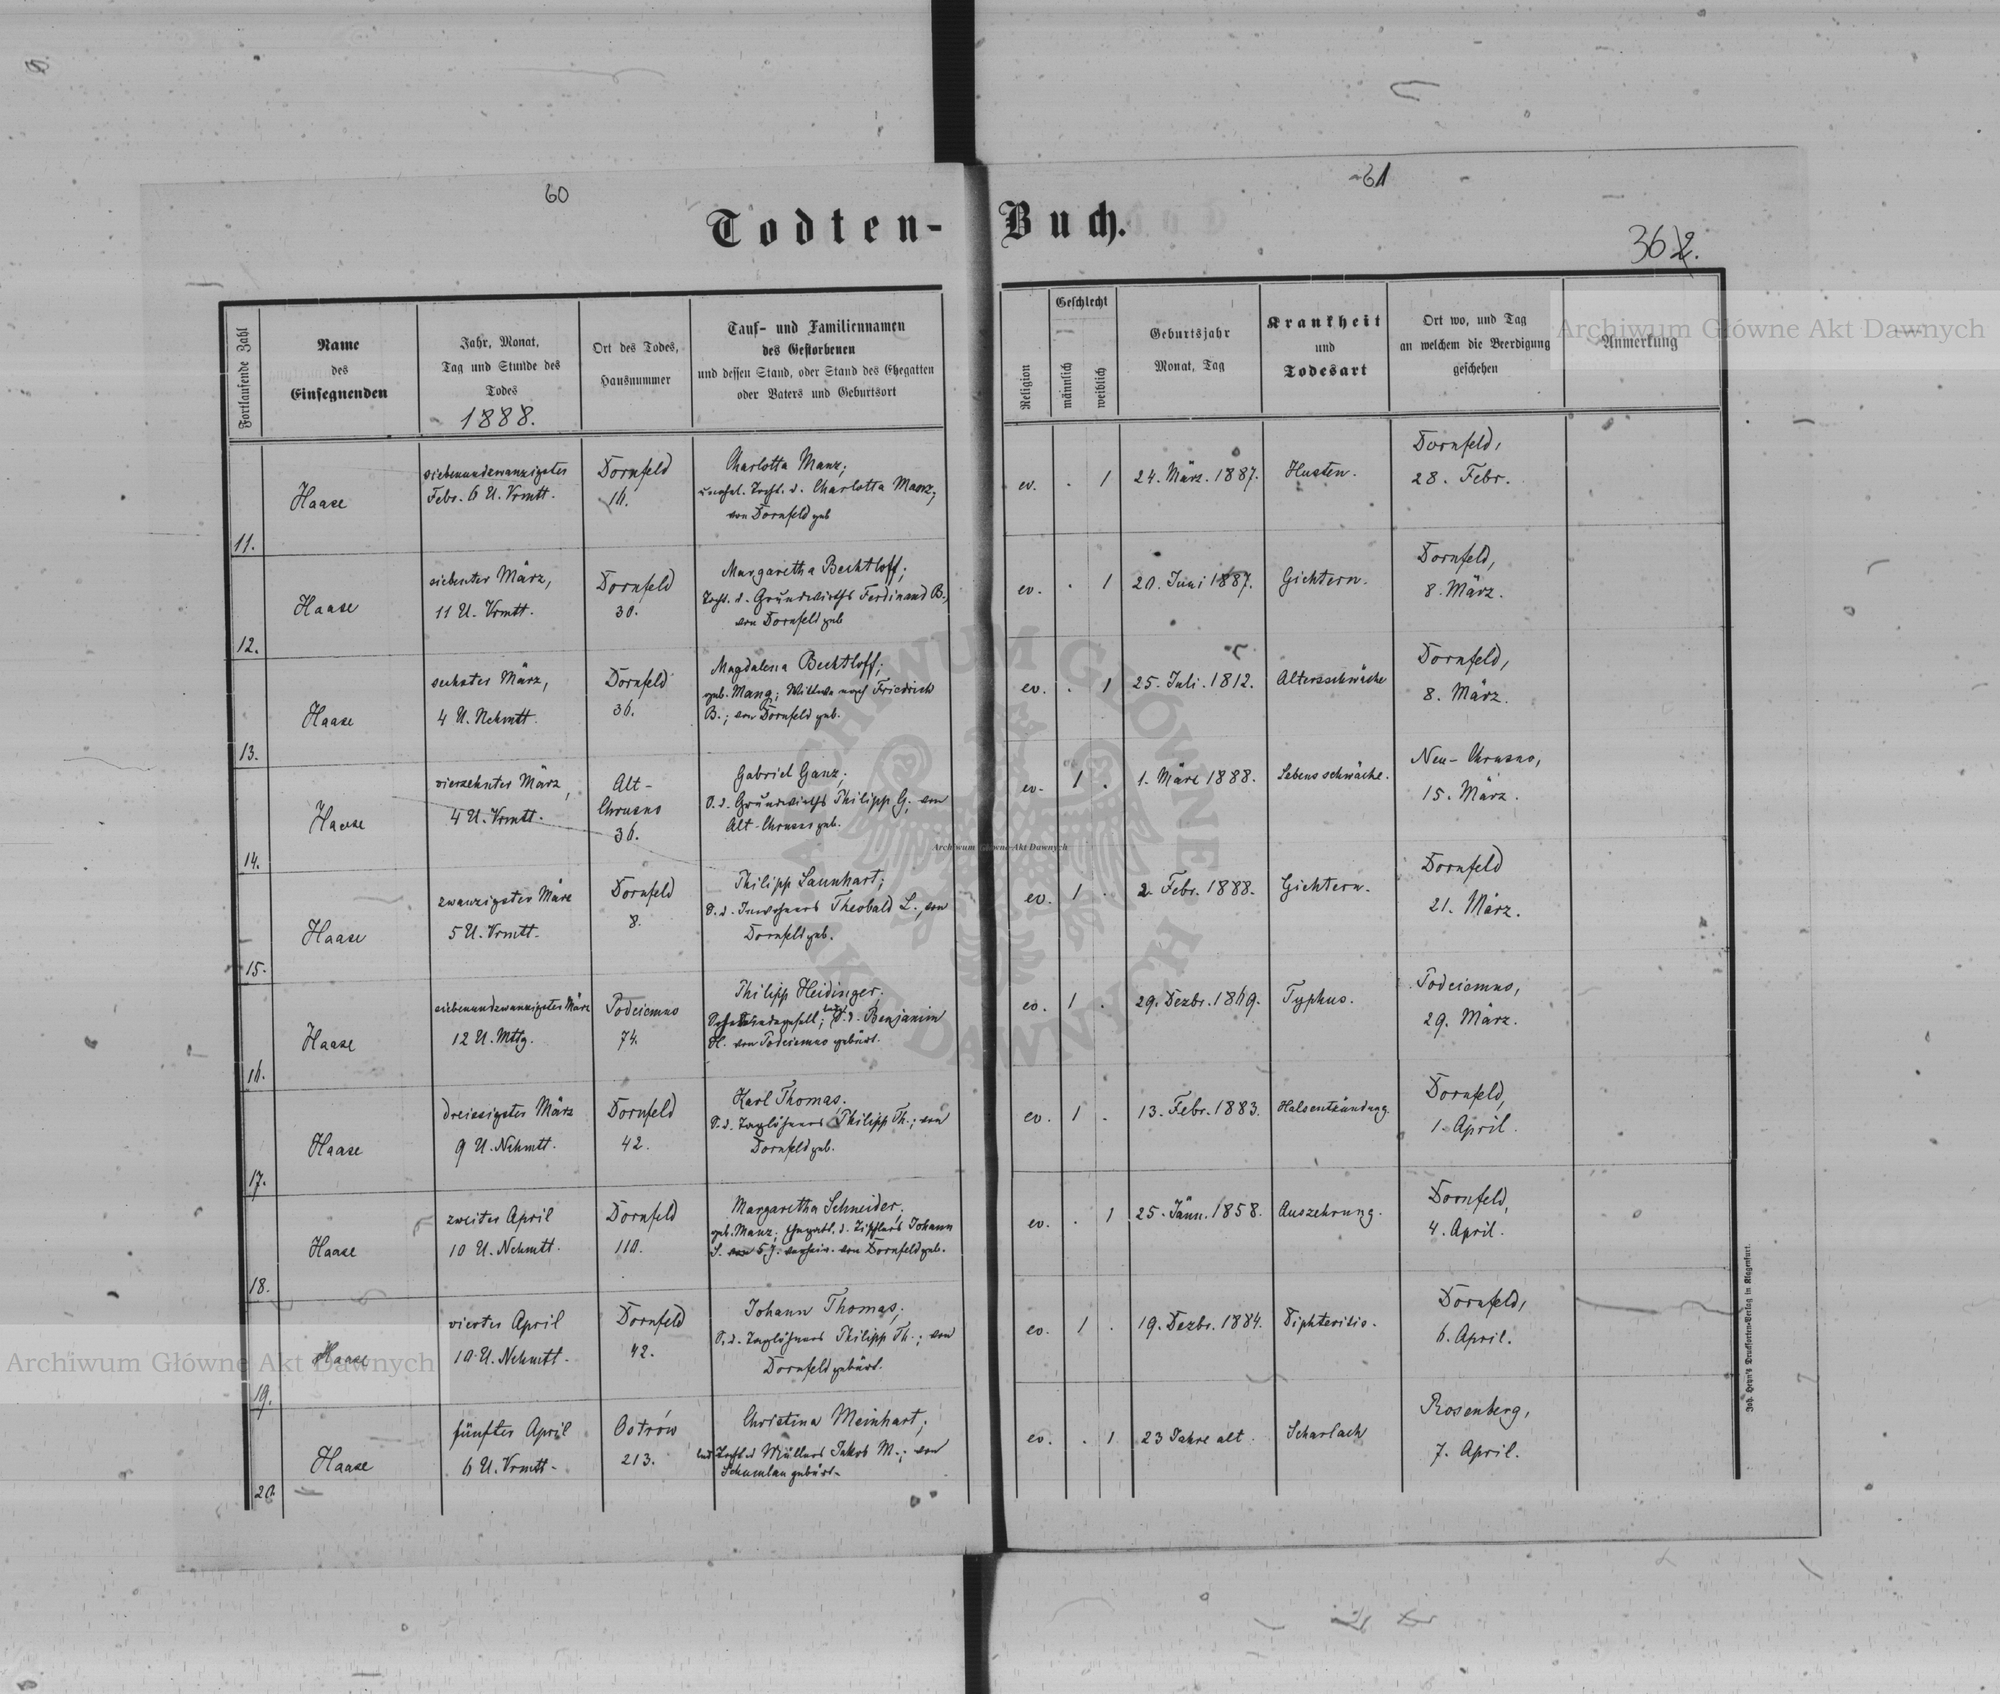 60
61
Todten-Buch.
362.
Fortlaufende Zahl
Name
des
Einsegnenden
Jahr, Monat,
Tag und Stunde des
Todes
1888.
Ort des Todes,
Hausnummer
Tauf- und Familiennamen
des Gestorbenen
und dessen Stand, oder Stand des Ehegatten
oder Vaters und Geburtsort
Religion
Geschlecht
männlich
weiblich
Geburtsjahr
Monat, Tag
Krankheit
und
Todesart
Ort wo, und Tag
an welchem die Beerdigung
geschehen
Anmerkung
11.
Haase
siebenundzwanzigster
Febr. 6 U. Vrmtt.
Dornfeld
16.
Charlotta Manz;
unehel. Tocht. d. Charlotta Manz,
von Dornfeld geb
ev. . 1
24. März. 1887.
Husten.
Dornfeld,
28. Febr.
12.
Haase
siebenter März,
11 U. Vrmtt.
Dornfeld
30.
Margaretha Bechtloff;
Tocht. d. Grundwirths Ferdinand B.,
von Dornfeld geb
ev. . 1
20. Juni 1887.
Gichtern.
Dornfeld,
8. März.
13.
Haase
sechster März,
4 U. Nchmtt.
Dornfeld
36.
Magdalena Bechtloff;
geb. Mang; Wittwe nach Friedrich
B.; von Dornfeld geb.
ev. . 1
25. Juli. 1812.
Altersschwäche
Dornfeld,
8. März.
14.
Haase
vierzehnter März,
4 U. Vrmtt.
Alt-
Chrusno
36.
Gabriel Ganz;
S. d. Grundwirths Philipp G; von
Alt-Chrusno geb.
ev. 1 .
1. März 1888.
Lebensschwäche.
Neu-Chrusno,
15. März.
15.
Haase
zwanzigster März
5 U. Vrmtt.
Dornfeld
8.
Philipp Launhart;
S. d. Inwohners Theobald L., von
Dornfeld geb.
ev. 1 .
2. Febr. 1888.
Gichtern.
Dornfeld
21. März.
16.
Haase
siebenundzwanzigster März
12 U. Mttg.
Podciemno
74.
Philipp Heidinger;
S. d. Benjamin
H. von Podciemno gebürt.
ev. 1 .
29. Dezbr. 1869.
Typhus.
Podciemno,
29. März.
17.
Haase
dreissigster März
9 U. Nchmtt.
Dornfeld
42.
Karl Thomas.
S. d. Taglöhners Philipp Th.; von
Dornfeld geb.
ev. 1 .
13. Febr. 1883.
Halsentzündung.
Dornfeld,
1. April.
18.
Haase
zweiter April
10 U. Nchmtt.
Dornfeld
110.
Margaretha Schneider,
geb. Manz; Ehegatt. d. Johann
S. von Dornfeld geb.
ev. . 1
25. Jänn. 1858.
Auszehrung.
Dornfeld,
4. April.
19.
Haase
vierter April
10 U. Nchmtt.
Dornfeld
42.
Johann Thomas;
S. d. Taglöhners Philipp Th.; von
Dornfeld gebürt.
ev. 1 .
19. Dezbr. 1884.
Diphteritis.
Dornfeld,
6. April.
20.
Haase
fünfter April
6 U. Vrmtt.
Ostrów
213.
Christina Meinhart;
Tocht. d. Müllers Jakob M.; von
gebürt.
ev. . 1
23 Jahre alt.
Scharlach
Rosenberg,
7. April.
Joh. Heyn's Drucksorten-Verlag in Klagenfurt.
Archiwum Główne Akt Dawnych
Archiwum Główne Akt Dawnych
Archiwum Główne Akt Dawnych
ARCHIWUM GŁÓWNE AKT DAWNYCH